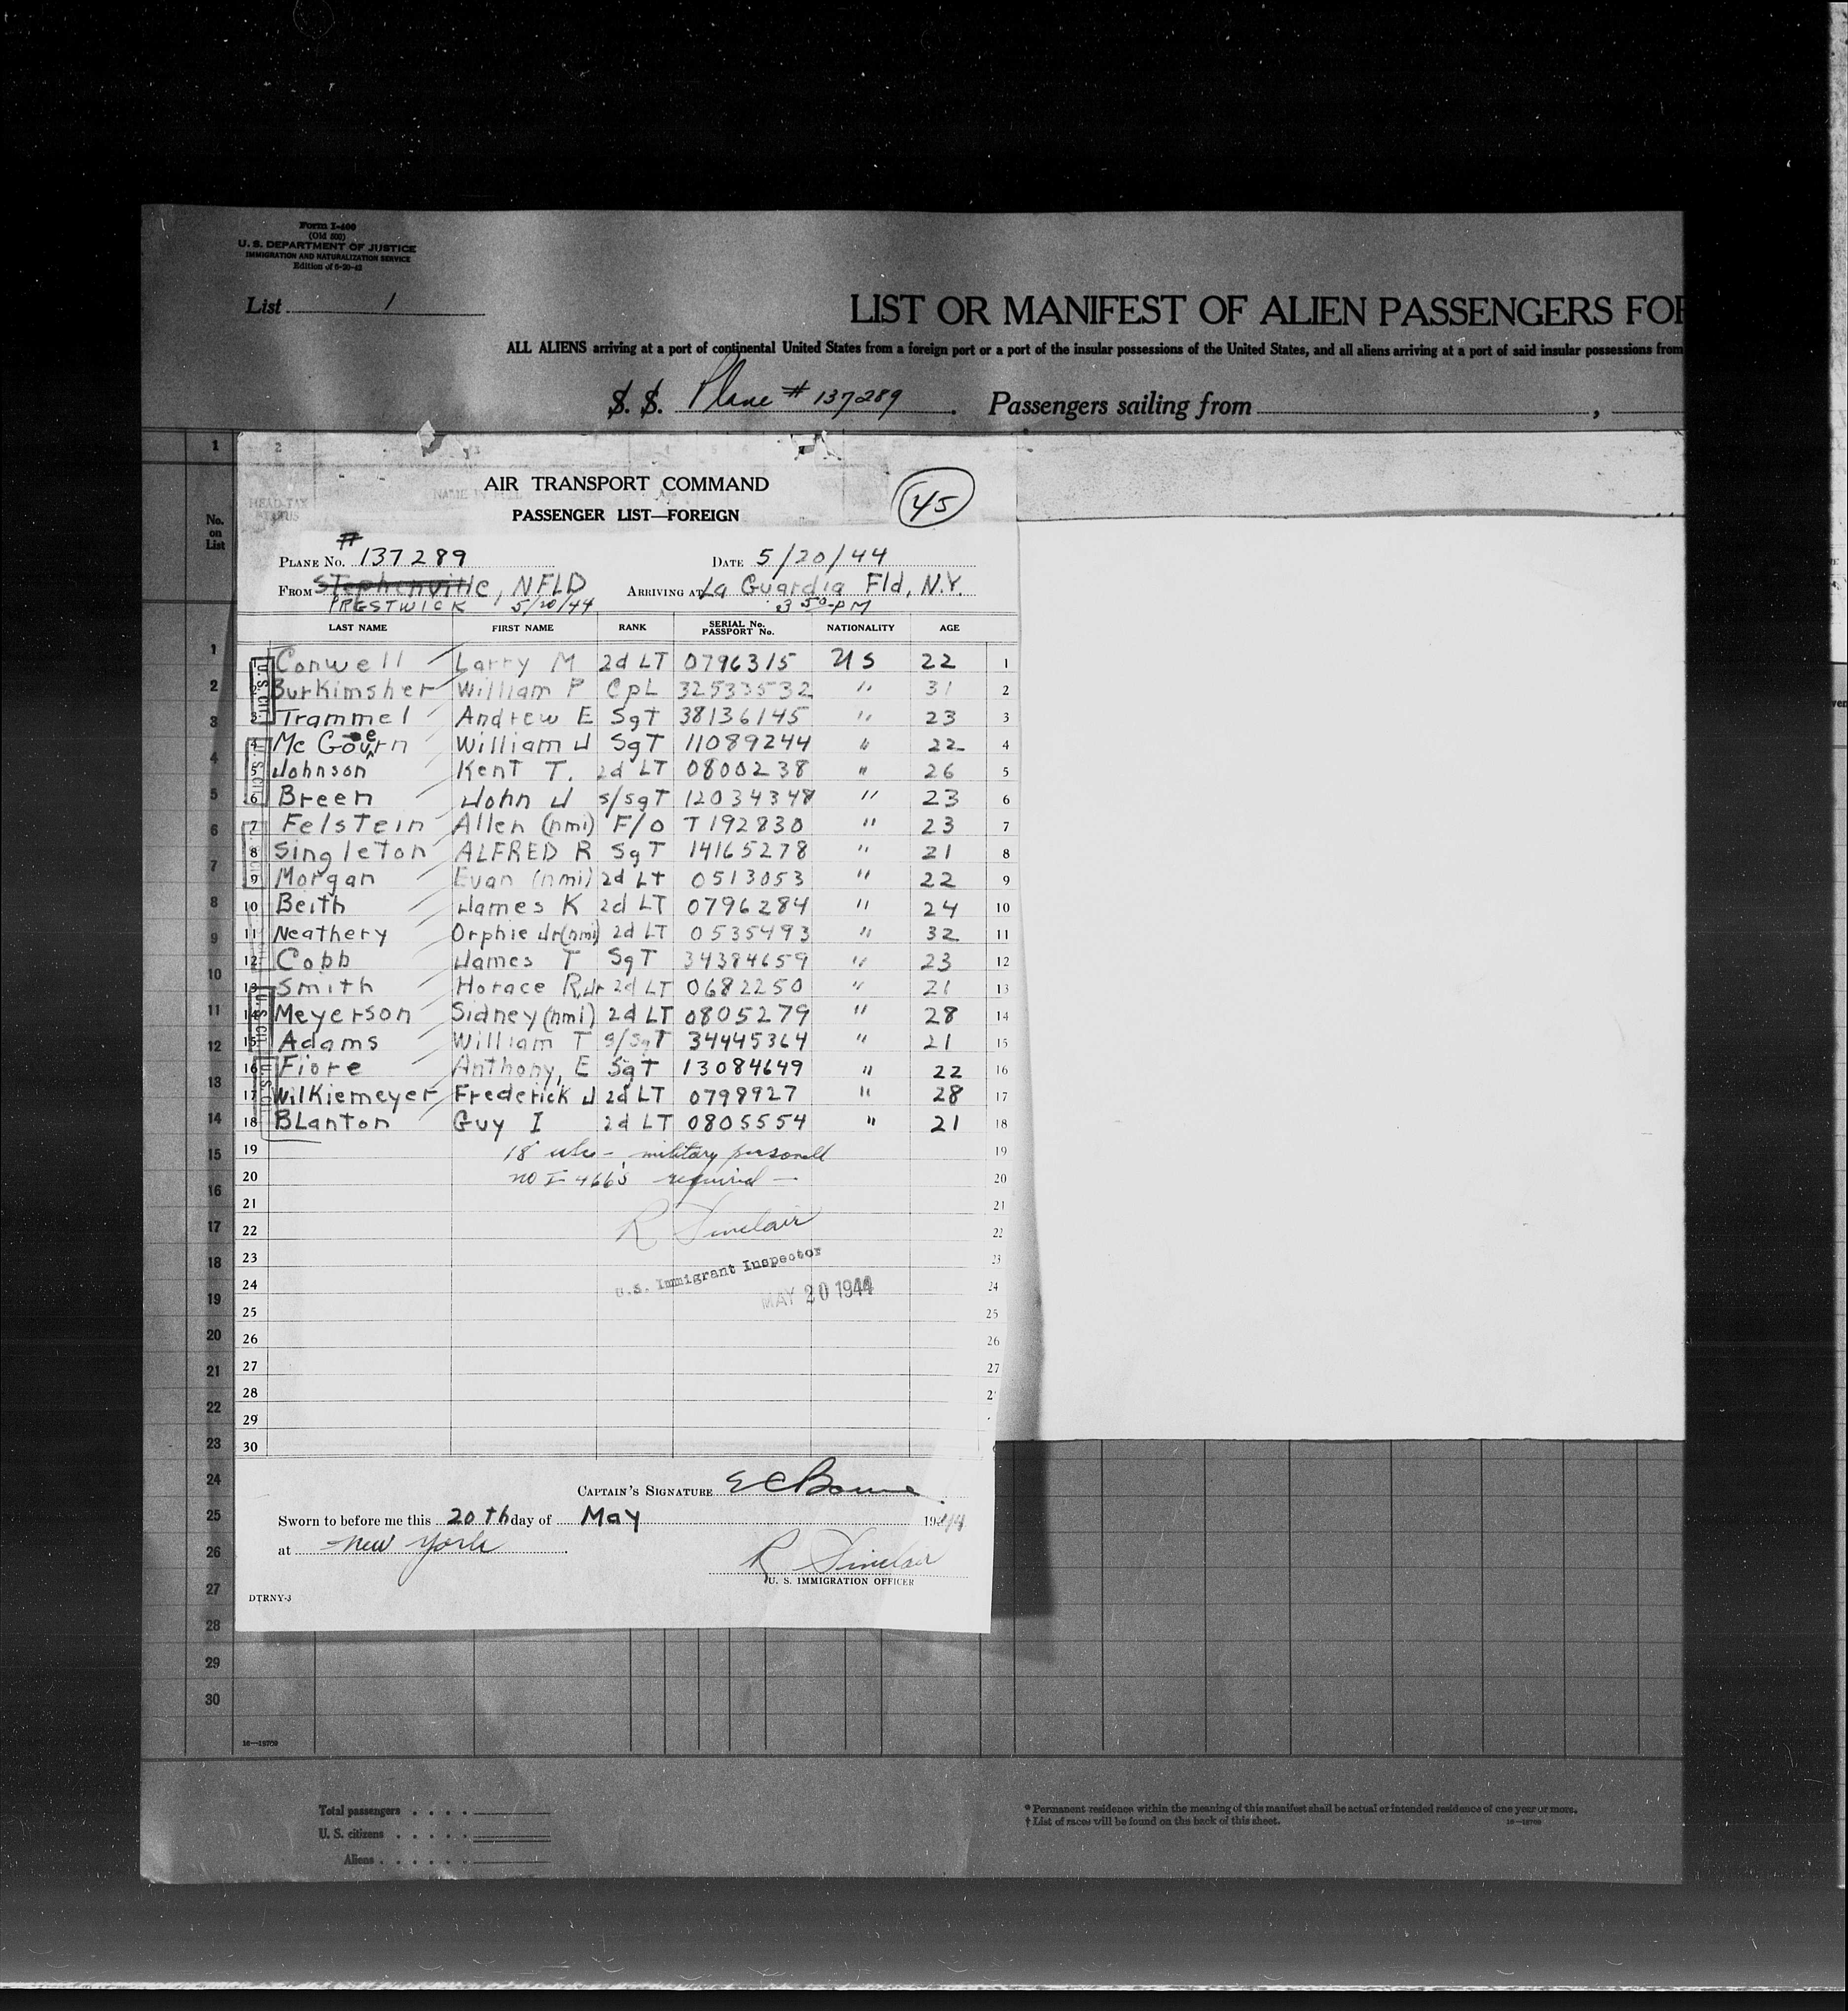 Form I-400
(Old 500)
U. S. DEPARTMENT OF JUSTICE
IMMIGRATION AND NATURALIZATION SERVICE
Edition of 6-20-43
List 1
LIST OR MANIFEST OF ALIEN PASSENGERS FOR
ALL ALIENS arriving at a port of continental United States from a foreign port or a port of the insular possessions of the United States, and all aliens arriving at a port of said insular possessions from
S. S. Plane # 137289 . Passengers sailing from ,
1 2 3
HEAD-TAX STATUS
NAME IN FULL
No. on List
AIR TRANSPORT COMMAND
45
PASSENGER LIST—FOREIGN
#
PLANE No. 137289 DATE 5/20/44
FROM Stephenville, NFLD ARRIVING AT La Guardia Fld, N.Y.
PRESTWICK 5/20/44 3 50 PM
LAST NAME FIRST NAME RANK SERIAL No. PASSPORT No. NATIONALITY AGE
1 Conwell Larry M 2d LT 0796315 US 22 1
2 Burkimsher William P CpL 32533532 " 31 2
3 Trammel Andrew E SgT 38136145 " 23 3
4 Mc Govern William J SgT 11089244 " 22 4
5 Johnson Kent T. 2d LT 0800238 " 26 5
6 Breen John J S/SgT 12034348 " 23 6
7 Felstein Allen (nmi) F/O T192830 " 23 7
8 Singleton ALFRED R SgT 14165278 " 21 8
9 Morgan Evan (nmi) 2d LT 0513053 " 22 9
10 Beith James K 2d LT 0796284 " 24 10
11 Neathery Orphie Jr(nmi) 2d LT 0535493 " 32 11
12 Cobb James T SgT 34384659 " 23 12
13 Smith Horace R,Jr 2d LT 0682250 " 21 13
14 Meyerson Sidney (nmi) 2d LT 0805279 " 28 14
15 Adams William T S/SgT 34445364 " 21 15
16 Fiore Anthony, E SgT 13084649 " 22 16
17 Wilkiemeyer Frederick J 2d LT 0798927 " 28 17
18 BLanton Guy I 2d LT 0805554 " 21 18
19 18 - military personell 19
20 no I-466's required — 20
21 21
22 R Sinclair 22
23 U.S. Immigrant Inspector 23
24 MAY 20 1944 24
25 25
26 26
27 27
28 2
29
30
CAPTAIN'S SIGNATURE
Sworn to before me this 20th day of May 1944
at New York .
R Sinclair
U. S. IMMIGRATION OFFICER
DTRNY-3
1
2
3
4
5
6
7
8
9
10
11
12
13
14
15
16
17
18
19
20
21
22
23
24
25
26
27
28
29
30
16—19709
Total passengers . . . .
U. S. citizens . . . . .
Aliens . . . . . .
* Permanent residence within the meaning of this manifest shall be actual or intended residence of one year or more.
† List of races will be found on the back of this sheet.
16—19709